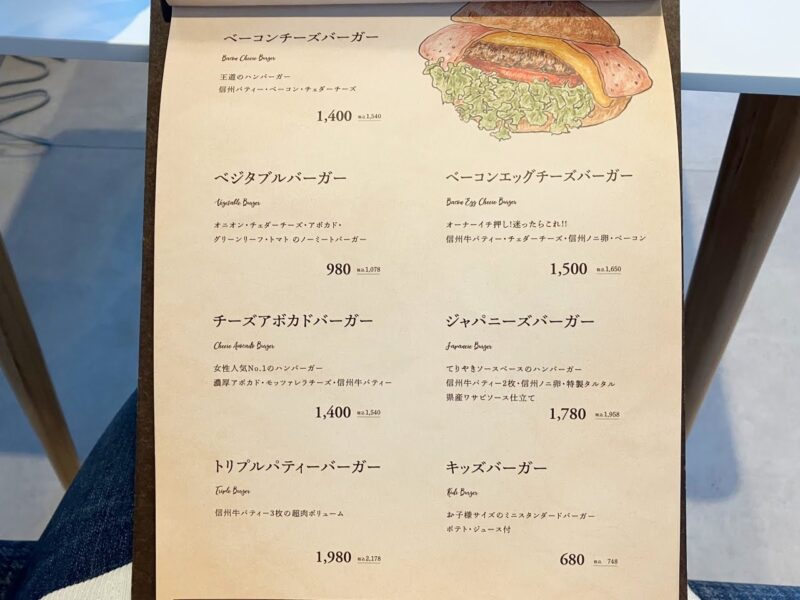 ベーコンチーズバーガー
Bacon Cheese Burger
王道のハンバーガー
信州パティー・ベーコン・チェダーチーズ
1,400 税込1,540
ベジタブルバーガー
Vegetable Burger
オニオン・チェダーチーズ・アボカド・
グリーンリーフ・トマト のノーミートバーガー
980 税込1,078
ベーコンエッグチーズバーガー
Bacon Egg Cheese Burger
オーナーイチ押し!迷ったらこれ!!
信州牛パティー・チェダーチーズ・信州ノニ卵・ベーコン
1,500 税込1,650
チーズアボカドバーガー
Cheese Avocado Burger
女性人気No.1のハンバーガー
濃厚アボカド・モッツァレラチーズ・信州牛パティー
1,400 税込1,540
ジャパニーズバーガー
Japanese Burger
てりやきソースベースのハンバーガー
信州牛パティー2枚・信州ノニ卵・特製タルタル
県産ワサビソース仕立て
1,780 税込1,958
トリプルパティーバーガー
Triple Burger
信州牛パティー3枚の超肉ボリューム
1,980 税込2,178
キッズバーガー
Kids Burger
お子様サイズのミニスタンダードバーガー
ポテト・ジュース付
680 税込 748